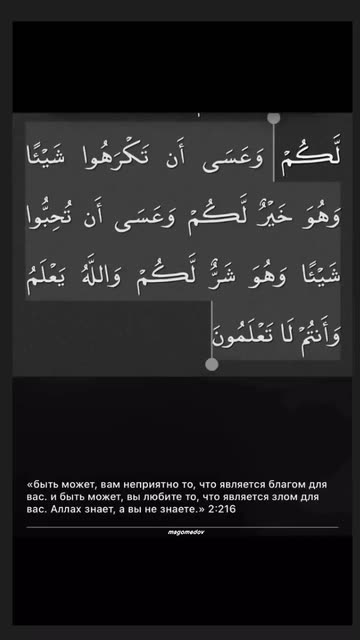 لَّكُمْ وَعَسَى أَن تَكْرَهُوا شَيْئًا
وَهُوَ خَيْرٌ لَّكُمْ وَعَسَى أَن تُحِبُّوا
شَيْئًا وَهُوَ شَرٌّ لَّكُمْ وَاللَّهُ يَعْلَمُ
وَأَنتُمْ لَا تَعْلَمُونَ
«быть может, вам неприятно то, что является благом для
вас. и быть может, вы любите то, что является злом для
вас. Аллах знает, а вы не знаете.» 2:216
magomedov